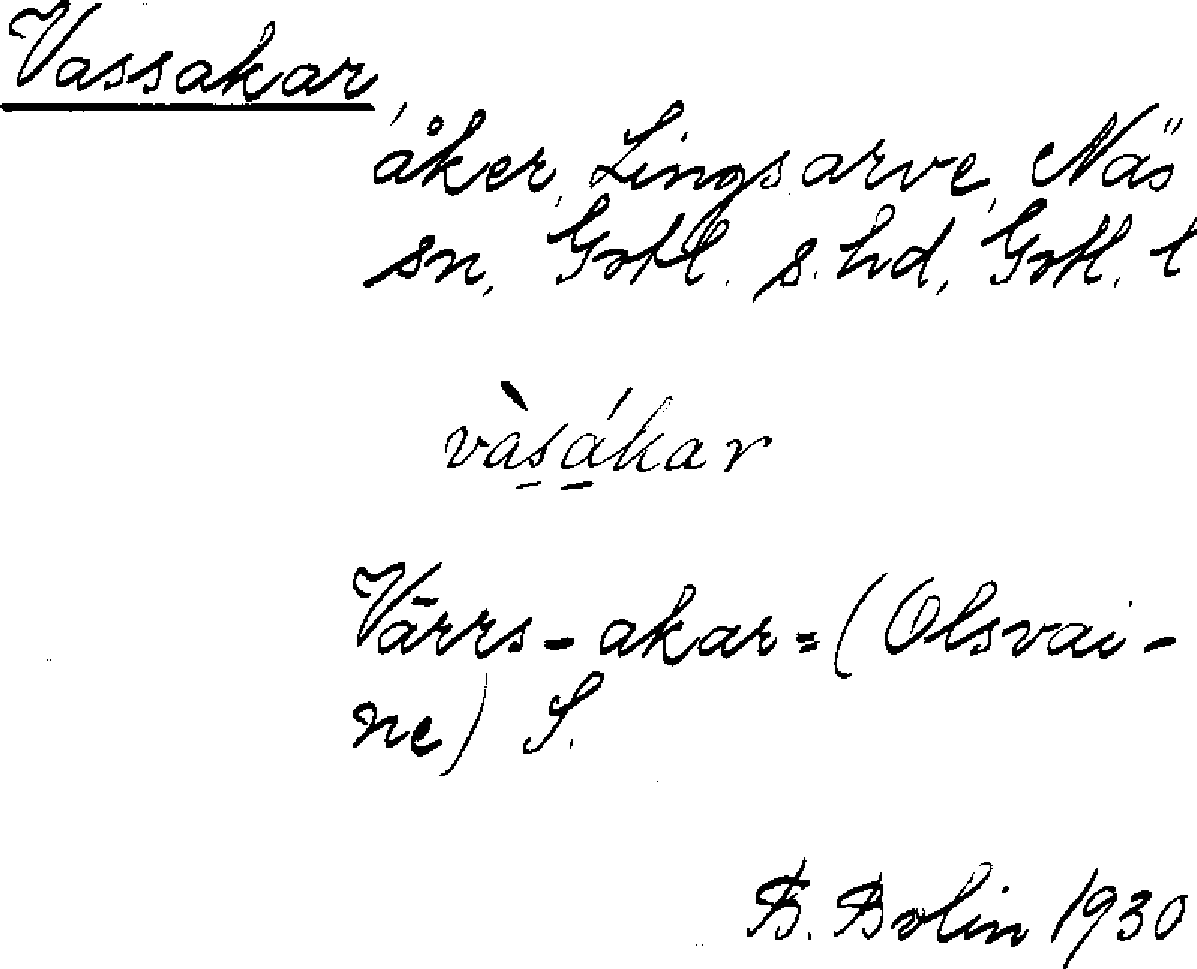 Vassakar,
åker, Lingsarve, Näs
sn, Gotl. s. hd, Gotl. l
vàs̱á̱kar
Värrs-akar=(Olsvai-
ne) S.
B. Bolin 1930